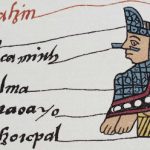 ahin
camich
lma
aoayo
hoicpal